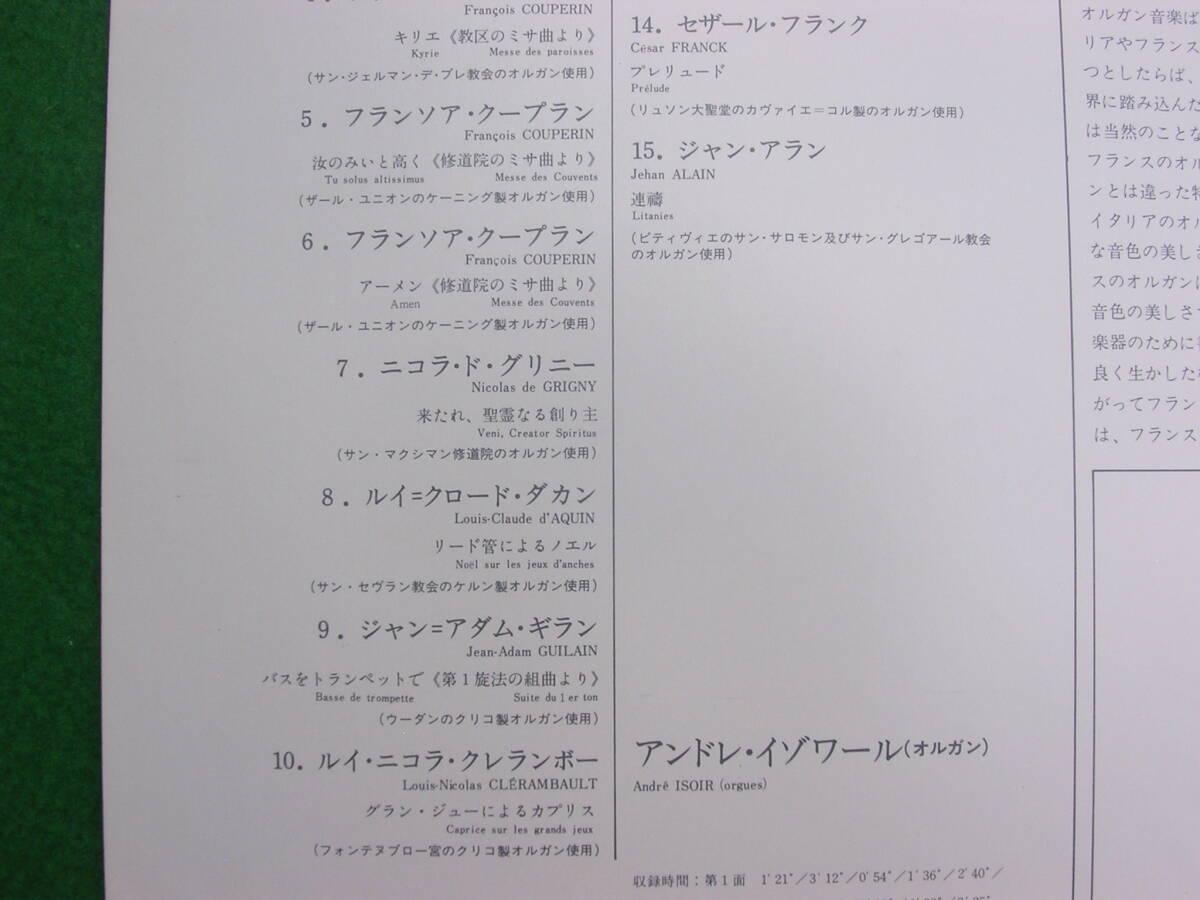 François COUPERIN
キリエ《教区のミサ曲より》
Kyrie Messe des paroisses
(サン・ジェルマン・デ・プレ教会のオルガン使用)
5. フランソア・クープラン
François COUPERIN
汝のみいと高く《修道院のミサ曲より》
Tu solus altissimus Messe des Couvents
(ザール・ユニオンのケーニング製オルガン使用)
6. フランソア・クープラン
François COUPERIN
アーメン《修道院のミサ曲より》
Amen Messe des Couvents
(ザール・ユニオンのケーニング製オルガン使用)
7. ニコラ・ド・グリニー
Nicolas de GRIGNY
来たれ、聖霊なる創り主
Veni, Creator Spiritus
(サン・マクシマン修道院のオルガン使用)
8. ルイ=クロード・ダカン
Louis-Claude d'AQUIN
リード管によるノエル
Noël sur les jeux d'anches
(サン・セヴラン教会のケルン製オルガン使用)
9. ジャン=アダム・ギラン
Jean-Adam GUILAIN
バスをトランペットで《第1旋法の組曲より》
Basse de trompette Suite du 1 er ton
(ウーダンのクリコ製オルガン使用)
10. ルイ・ニコラ・クレランボー
Louis-Nicolas CLÉRAMBAULT
グラン・ジューによるカプリス
Caprice sur les grands jeux
(フォンテヌブロー宮のクリコ製オルガン使用)
14. セザール・フランク
César FRANCK
プレリュード
Prélude
(リュソン大聖堂のカヴァイエ=コル製のオルガン使用)
15. ジャン・アラン
Jehan ALAIN
連禱
Litanies
(ピティヴィエのサン・サロモン及びサン・グレゴアール教会
のオルガン使用)
アンドレ・イゾワール(オルガン)
André ISOIR (orgues)
収録時間:第1面 1'21"/3'12"/0'54"/1'36"/2'40"/
オルガン音楽ば
リアやフランス
つとしたらば、
界に踏み込んだ
は当然のことな
フランスのオル
ンとは違った特
イタリアのオル
な音色の美しさ
スのオルガンに
音色の美しさ
楽器のために
良く生かした
がってフラン
は、フランス